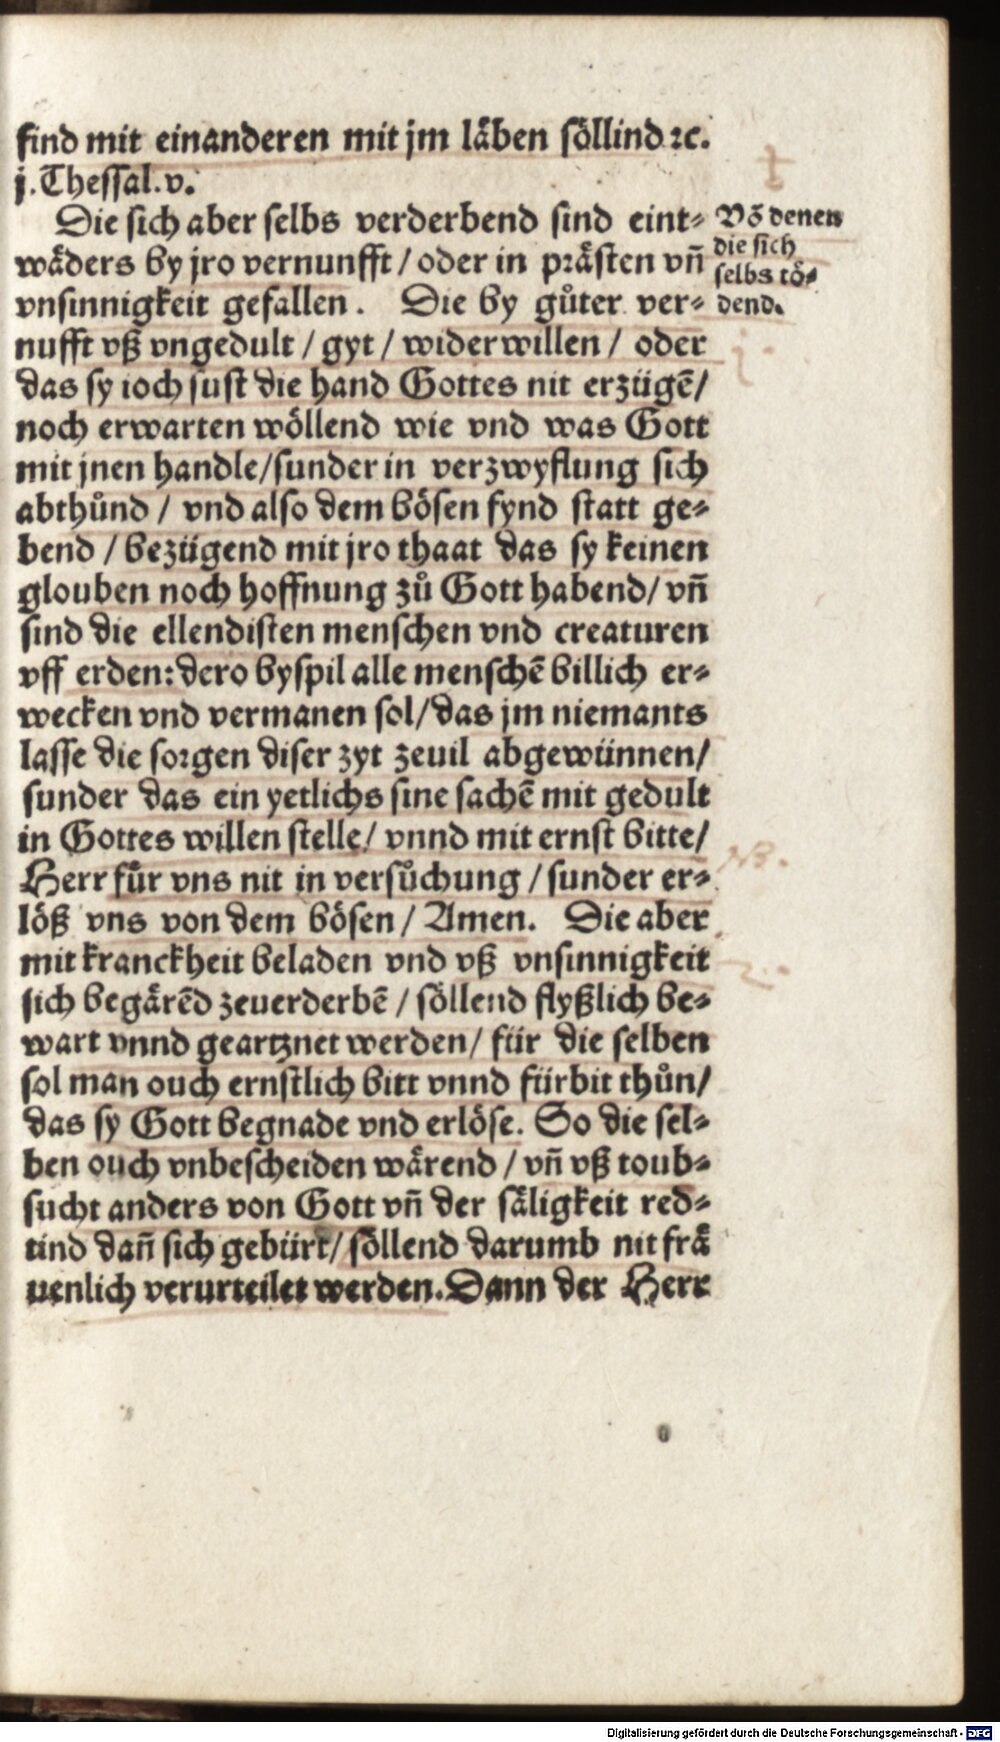 sind mit einanderen mit jm låben söllind ꝛc.
j. Thessal. v.
Die sich aber selbs verderbend sind eint⸗
wåders by jro vernunfft / oder in pråsten vñ
vnsinnigkeit gefallen. Die by gůter ver⸗
nufft vß vngedult / gyt / widerwillen / oder
das sy ioch sust die hand Gottes nit erzügẽ /
noch erwarten wöllend wie vnd was Gott
mit jnen handle / sunder in verzwyflung sich
abthůnd / vnd also dem bösen fynd statt ge⸗
bend / bezügend mit jro thaat das sy keinen
glouben noch hoffnung zů Gott habend / vñ
sind die ellendisten menschen vnd creaturen
vff erden: dero byspil alle menschẽ billich er⸗
wecken vnd vermanen sol / das jm niemants
lasse die sorgen diser zyt zeuil abgewünnen /
sunder das ein yetlichs sine sachẽ mit gedult
in Gottes willen stelle / vnnd mit ernst bitte /
Herr fůr vns nit in versůchung / sunder er⸗
löß vns von dem bösen / Amen. Die aber
mit kranckheit beladen vnd vß vnsinnigkeit
sich begårẽd zeuerderbẽ / söllend flyßlich be⸗
wart vnnd geartznet werden / für die selben
sol man ouch ernstlich bitt vnnd fürbit thůn /
das sy Gott begnade vnd erlöse. So die sel⸗
ben ouch vnbescheiden wårend / vñ vß toub⸗
sucht anders von Gott vñ der såligkeit red⸗
tind dañ sich gebürt / söllend darumb nit frå
uenlich verurteilet werden. Dann der Herr
Võ denen
die sich
selbs tö⸗
dend.
j.
NB.
2.
Digitalisierung gefördert durch die Deutsche Forschungsgemeinschaft - DFG